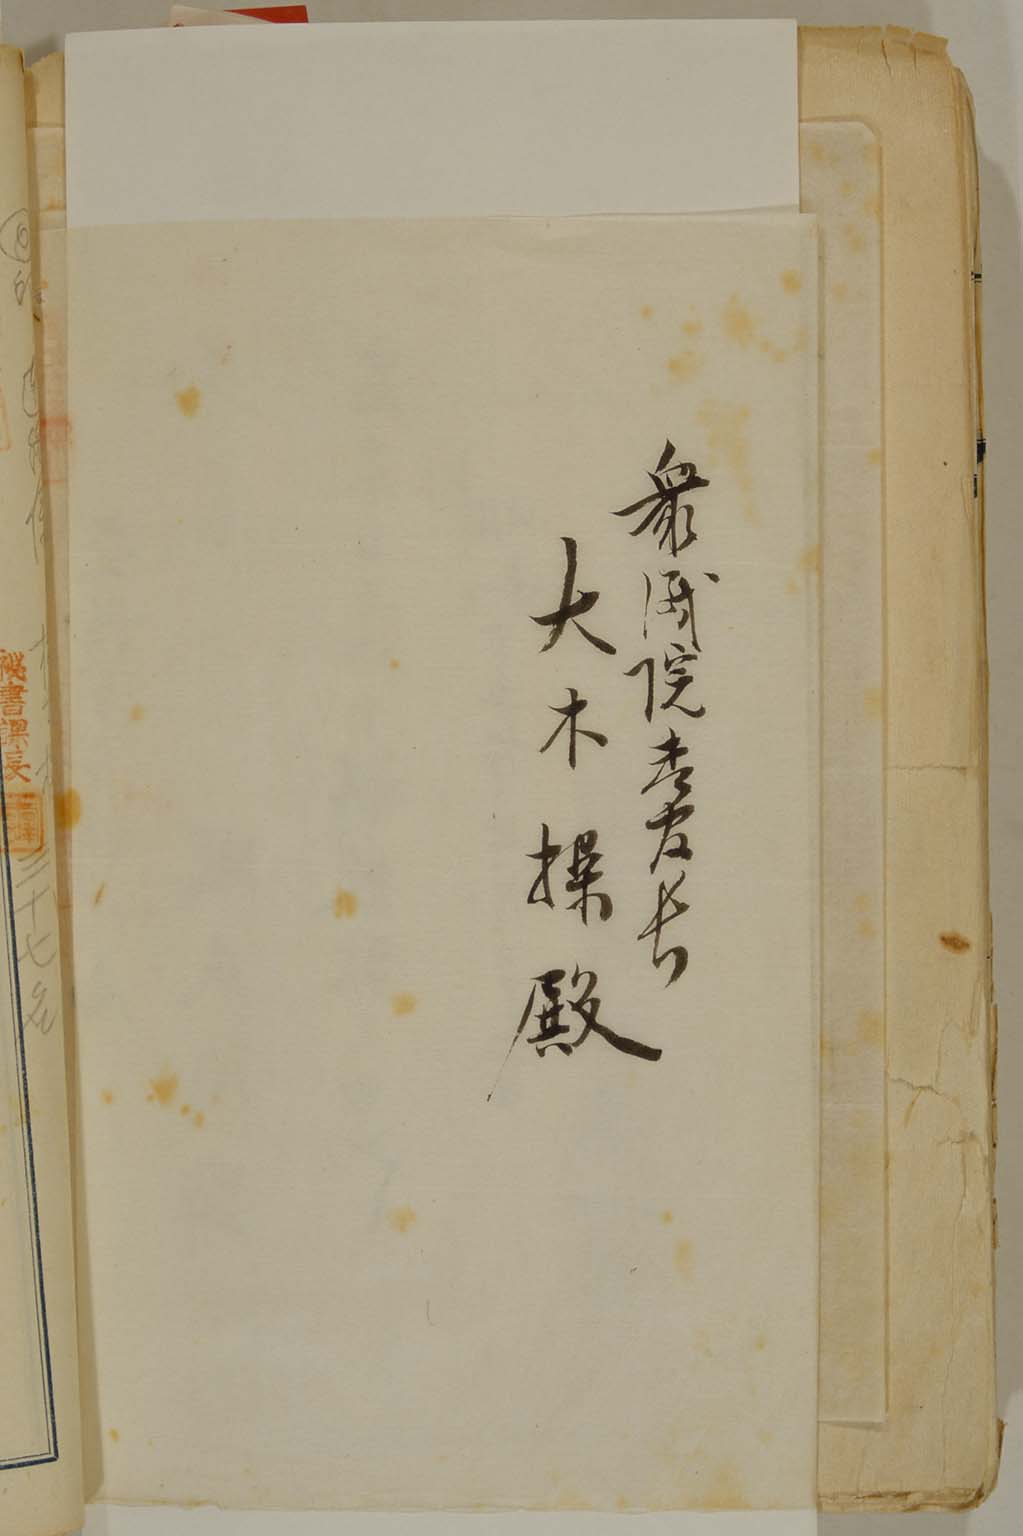 衆議院書記官長
大木操殿
秘書課長
三十七名